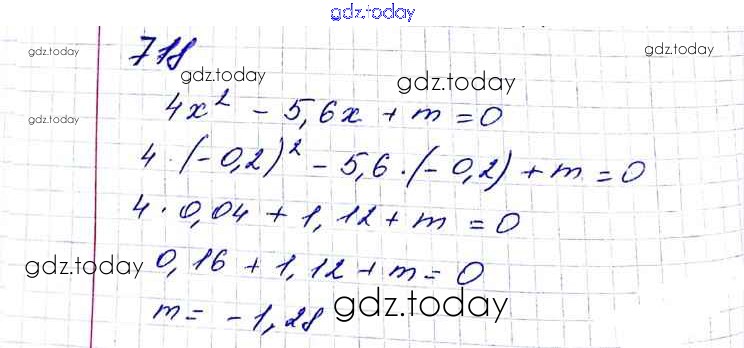 gdz.today
718
gdz.today gdz.today
gdz.today gdz.today
4x² - 5,6x + m = 0
gdz.today
4 · (-0,2)² - 5,6 · (-0,2) + m = 0
4 · 0,04 + 1,12 + m = 0
gdz.today 0,16 + 1,12 + m = 0
m = -1,28 gdz.today